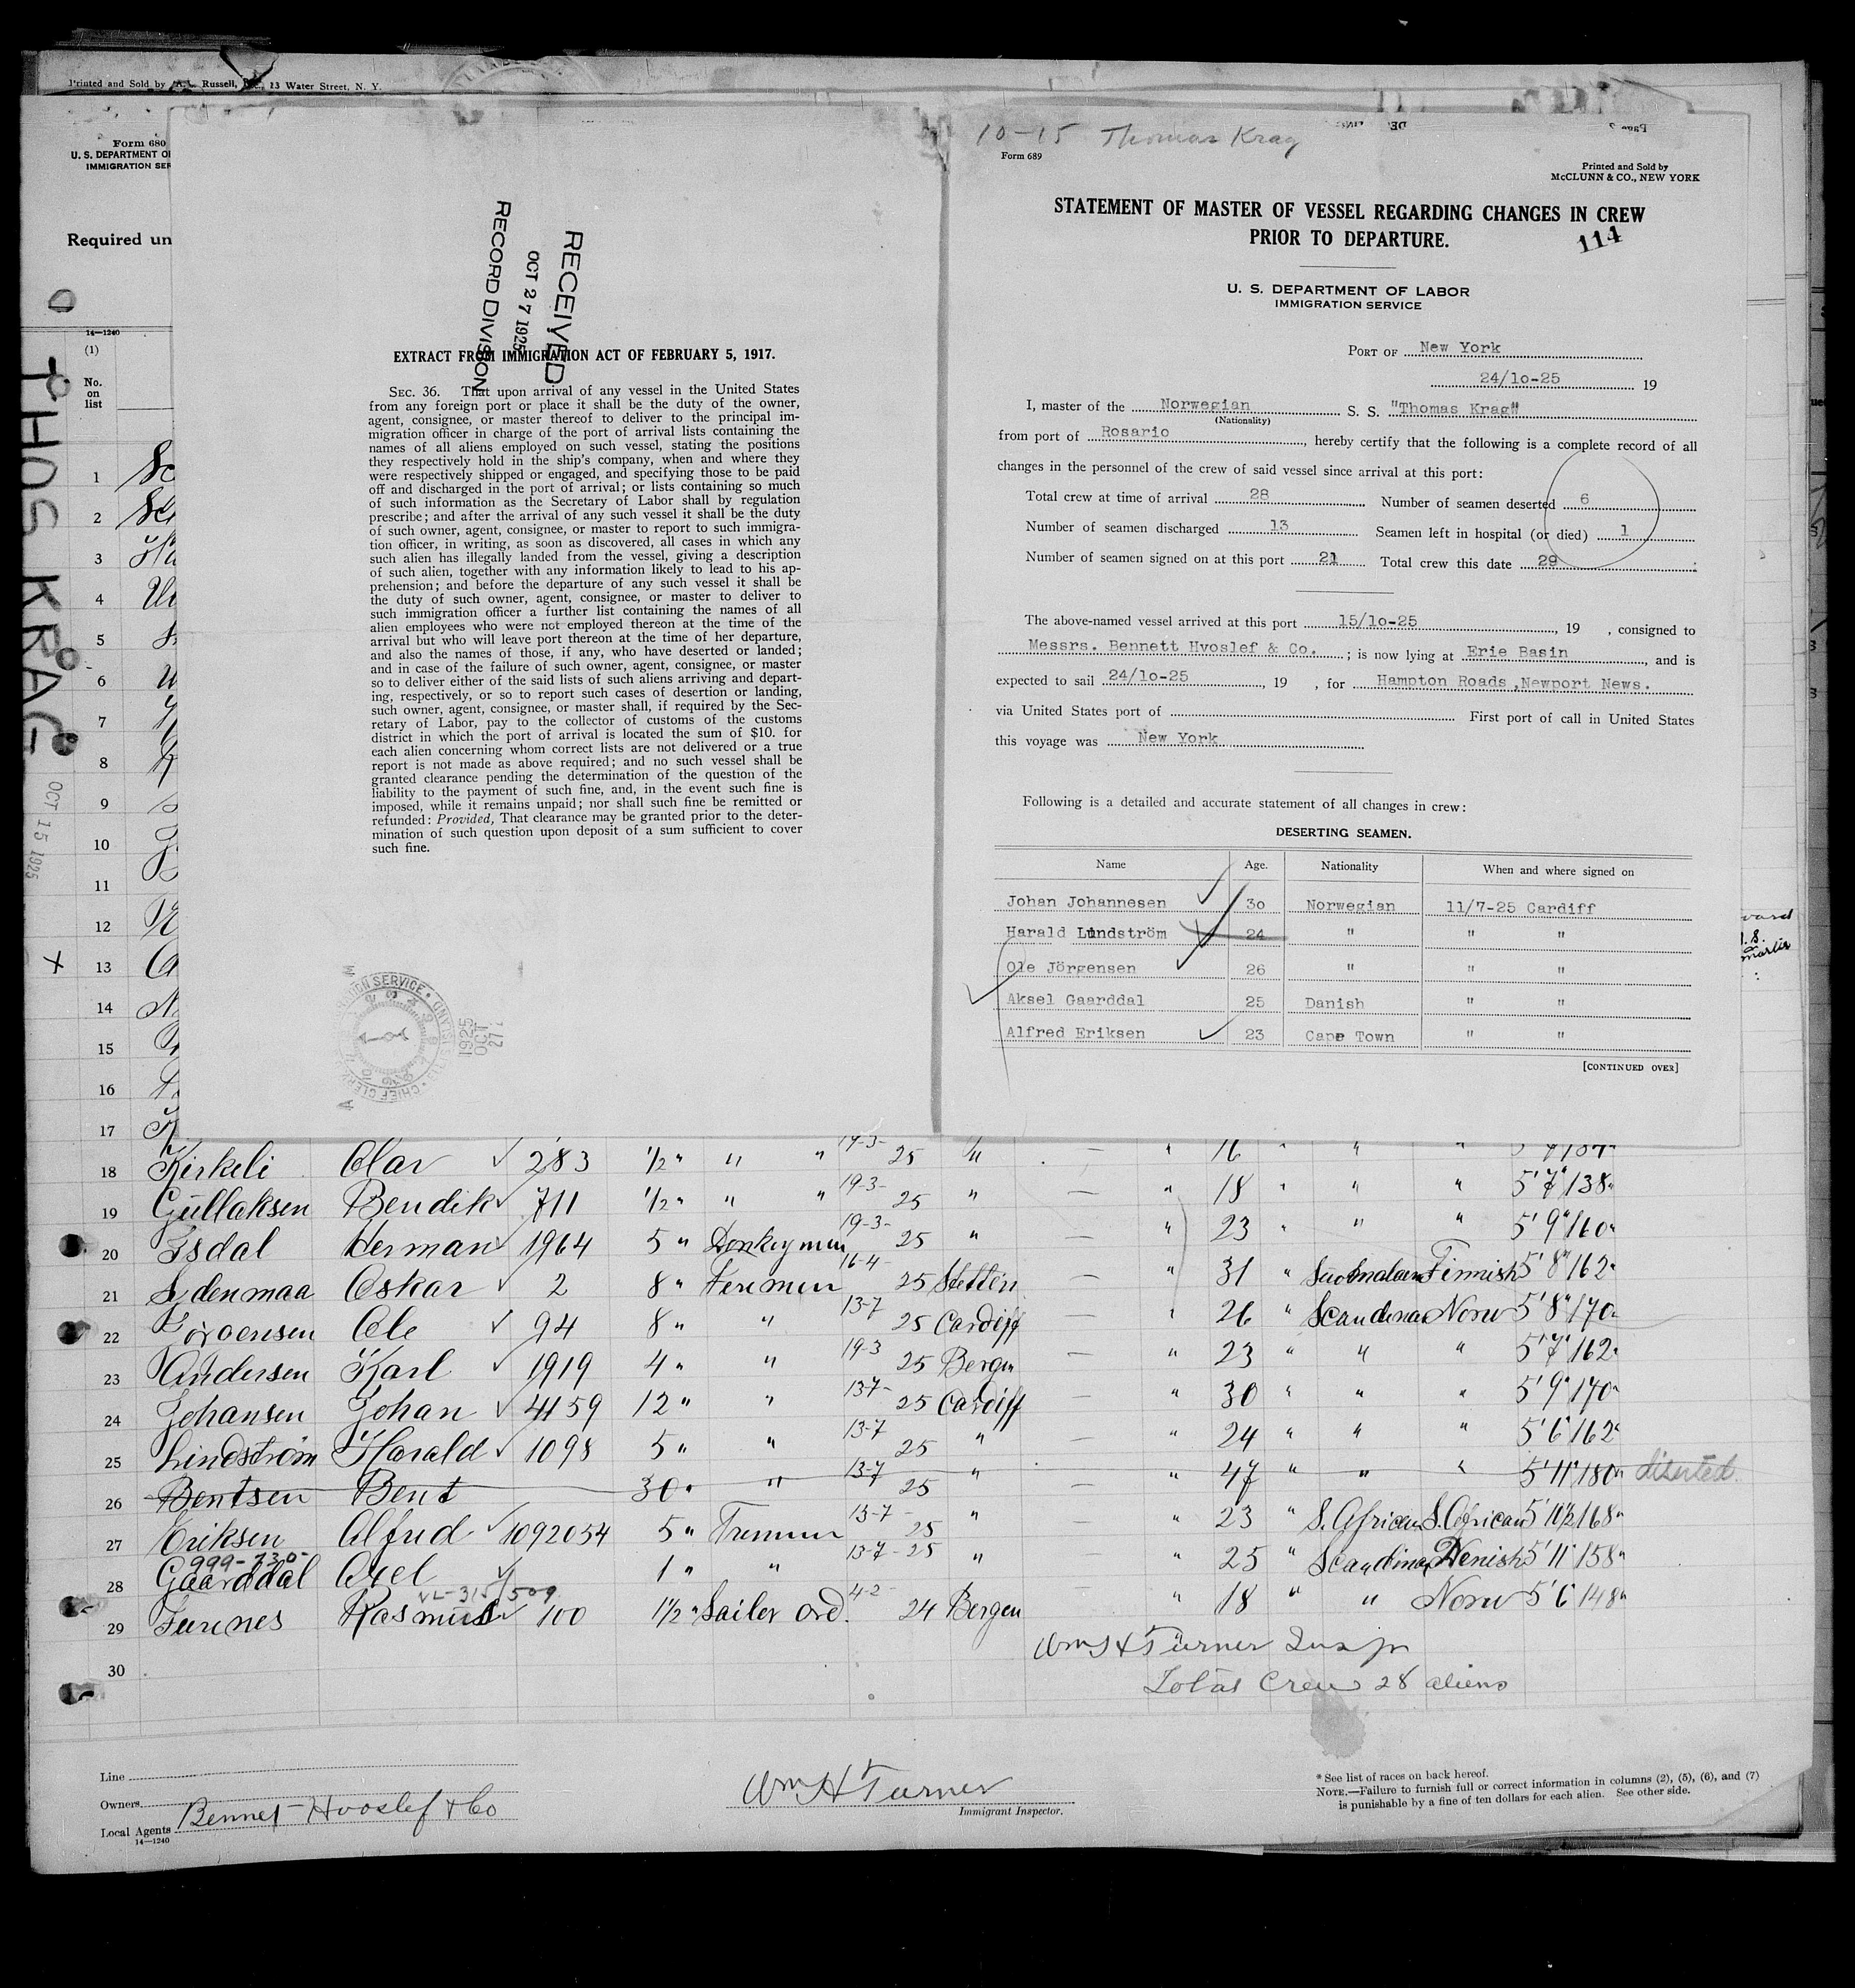 Printed and Sold by A.L. Russell, 13 Water Street, N. Y.
Form 680
U. S. DEPARTMENT OF
IMMIGRATION SER
Required un
14—1240
(1)
No.
on
list
THOS KRAG
OCT 15 1925
RECEIVED
OCT 27 1925
RECORD DIVISION
EXTRACT FROM IMMIGRATION ACT OF FEBRUARY 5, 1917.
SEC. 36. That upon arrival of any vessel in the United States
from any foreign port or place it shall be the duty of the owner,
agent, consignee, or master thereof to deliver to the principal im-
migration officer in charge of the port of arrival lists containing the
names of all aliens employed on such vessel, stating the positions
they respectively hold in the ship's company, when and where they
were respectively shipped or engaged, and specifying those to be paid
off and discharged in the port of arrival; or lists containing so much
of such information as the Secretary of Labor shall by regulation
prescribe; and after the arrival of any such vessel it shall be the duty
of such owner, agent, consignee, or master to report to such immigra-
tion officer, in writing, as soon as discovered, all cases in which any
such alien has illegally landed from the vessel, giving a description
of such alien, together with any information likely to lead to his ap-
prehension; and before the departure of any such vessel it shall be
the duty of such owner, agent, consignee, or master to deliver to
such immigration officer a further list containing the names of all
alien employees who were not employed thereon at the time of the
arrival but who will leave port thereon at the time of her departure,
and also the names of those, if any, who have deserted or landed;
and in case of the failure of such owner, agent, consignee, or master
so to deliver either of the said lists of such aliens arriving and depart-
ing, respectively, or so to report such cases of desertion or landing,
such owner, agent, consignee, or master shall, if required by the Sec-
retary of Labor, pay to the collector of customs of the customs
district in which the port of arrival is located the sum of $10. for
each alien concerning whom correct lists are not delivered or a true
report is not made as above required; and no such vessel shall be
granted clearance pending the determination of the question of the
liability to the payment of such fine, and, in the event such fine is
imposed, while it remains unpaid; nor shall such fine be remitted or
refunded: Provided, That clearance may be granted prior to the deter-
mination of such question upon deposit of a sum sufficient to cover
such fine.
10-15 Thomas Krag
Form 689
Printed and Sold by
McCLUNN & CO., NEW YORK
STATEMENT OF MASTER OF VESSEL REGARDING CHANGES IN CREW
PRIOR TO DEPARTURE.
114
U. S. DEPARTMENT OF LABOR
IMMIGRATION SERVICE
PORT OF New York
24/10-25 19
I, master of the Norwegian S. S. "Thomas Krag"
(Nationality)
from port of Rosario, hereby certify that the following is a complete record of all
changes in the personnel of the crew of said vessel since arrival at this port:
Total crew at time of arrival 28 Number of seamen deserted 6
Number of seamen discharged 13 Seamen left in hospital (or died) 1
Number of seamen signed on at this port 21 Total crew this date 29
The above-named vessel arrived at this port 15/10-25, 19 , consigned to
Messrs. Bennett Hvoslef & Co. ; is now lying at Erie Basin, and is
expected to sail 24/10-25, 19 , for Hampton Roads, Newport News.
via United States port of First port of call in United States
this voyage was New York
Following is a detailed and accurate statement of all changes in crew:
DESERTING SEAMEN.
Name Age. Nationality When and where signed on
Johan Johannesen 30 Norwegian 11/7-25 Cardiff
Harald Lundström 24 " " "
Ole Jörgensen 26 " " "
Aksel Gaarddal 25 Danish " "
Alfred Eriksen 23 Cape Town " "
[CONTINUED OVER]
1
2
3
4
5
6
7
8
9
10
11
12
13
14
15
16
17
18 Kirkeli Olav 283 1/2 " " " 19-3-25 " — " 16 " " "
19 Gullaksen Bendik 711 1/2 " " " 19-3-25 " — " 18 " " " 5'7" 138
20 Isdal Herman 1964 5 " Donkeyman 19-3-25 " — " 23 " " " 5'9" 160
21 Oskar 2 8 " Firemen 16-4-25 Stettin — " 31 " Finnish 5'8" 162
22 Jörgensen Ole 94 8 " " 13-7 25 Cardiff — " 26 " Scandina Norw 5'8" 170
23 Andersen Karl 1919 4 " " 19-3 25 Bergen — " 23 " " " 5'7" 162
24 Johansen Johan 4159 12 " " 13-7-25 Cardiff — " 30 " " " 5'9" 170
25 Lindström Harald 1098 5 " " 13-7 25 " — " 24 " " " 5'6" 162
26 Bentsen Bent 30 " " 13-7 25 " — " 47 " " " 5'11" 180 diserted.
27 Eriksen Alfred 1092054 5 " Trimmer 13-7-25 " — " 23 " S. African S. African 5'10 1/2 168
999-730-
28 Gaarddal Axel 1 " " 13-7-25 " — " 25 " Scandina Denish 5'11" 158
29 Furenes Rasmus 100 1 1/2 " Sailer ord. 4-2-24 Bergen " 18 " " Norw 5'6" 148
30
Wm H Turner Insp
Total Crew 28 aliens
Line
Owners
Local Agents Bennet-Hvoslef & Co
14—1240
Wm H Turner
Immigrant Inspector.
* See list of races on back hereof.
NOTE.—Failure to furnish full or correct information in columns (2), (5), (6), and (7)
is punishable by a fine of ten dollars for each alien. See other side.